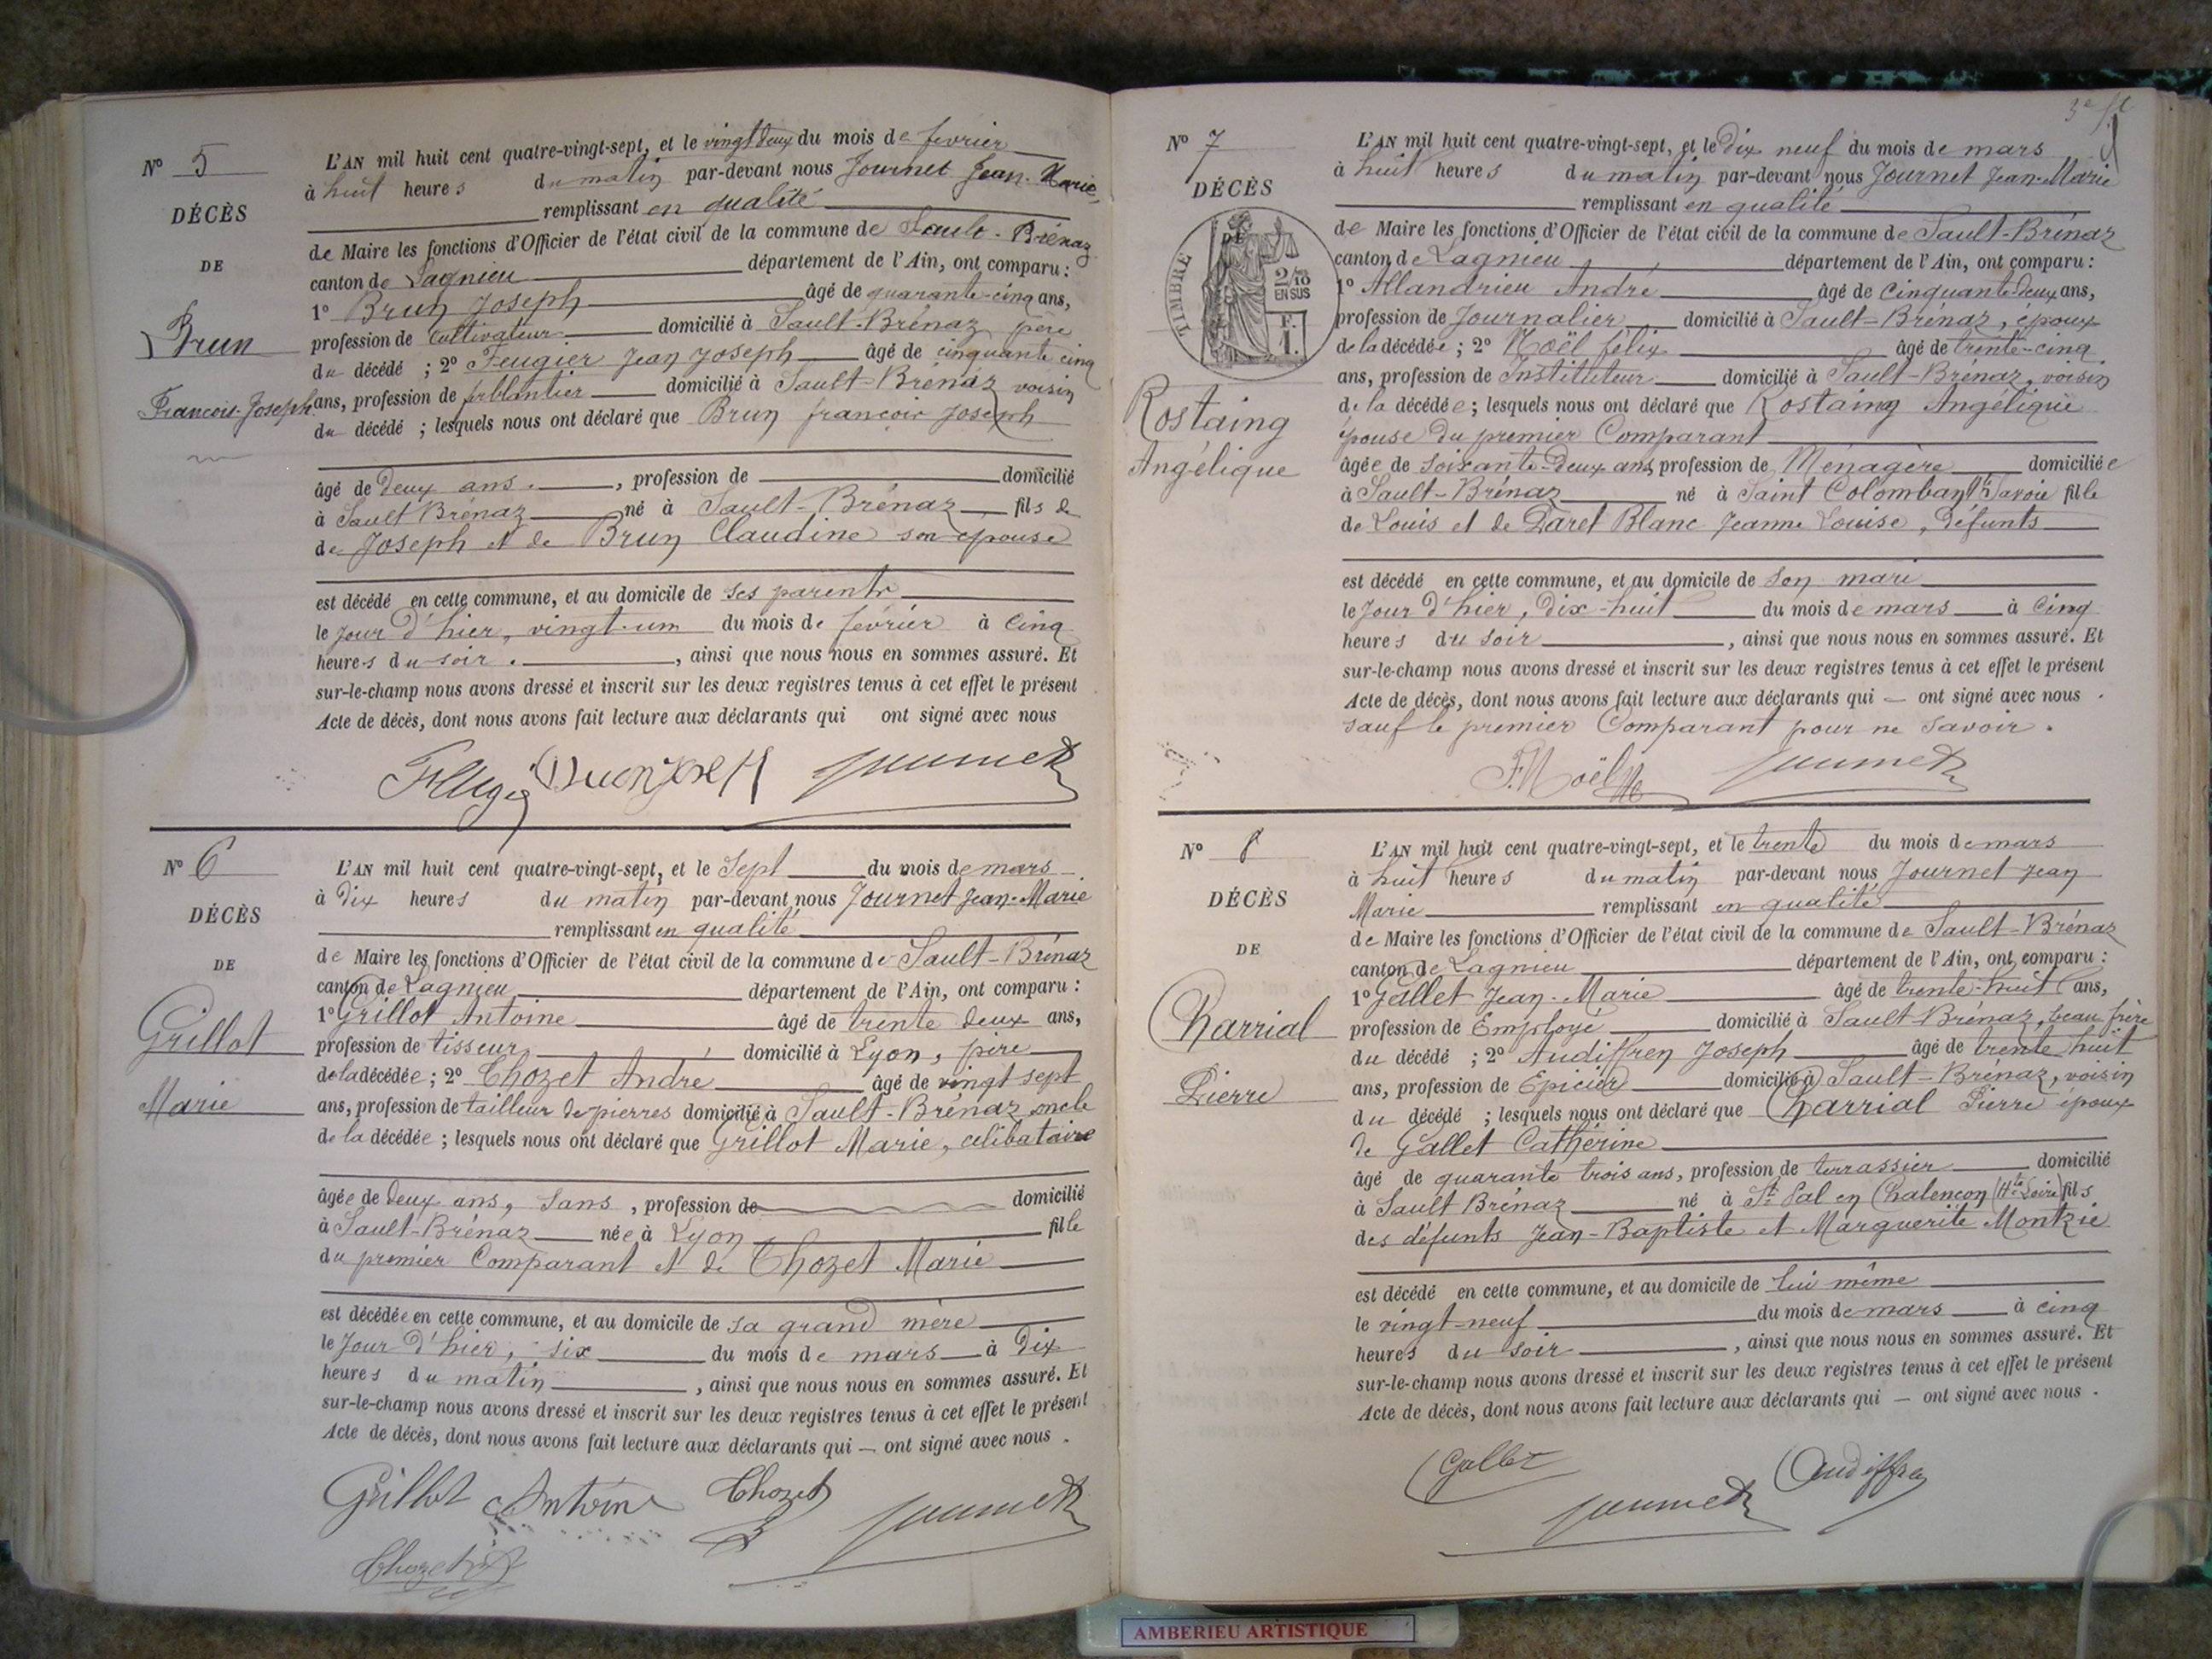 N° 5
DÉCÈS
DE
Brun
François Joseph
L'AN mil huit cent quatre-vingt-sept, et le vingt deux du mois de février
à huit heures du matin par-devant nous Journet Jean-Marie
remplissant en qualité
de Maire les fonctions d'Officier de l'état civil de la commune de Sault-Brénaz
canton de Lagnieu département de l'Ain, ont comparu :
1° Brun Joseph âgé de quarante-cinq ans,
profession de Cultivateur domicilié à Sault-Brénaz père
du décédé ; 2° Feugier Jean Joseph âgé de cinquante cinq
ans, profession de ferblantier domicilié à Sault-Brénaz voisin
du décédé ; lesquels nous ont déclaré que Brun françois Joseph
âgé de deux ans, profession de domicilié
à Sault Brénaz né à Sault-Brénaz fils de
de Joseph et de Brun Claudine son épouse
est décédé en cette commune, et au domicile de ses parents
le jour d'hier, vingt-um du mois de février à cinq
heures du soir, ainsi que nous nous en sommes assuré. Et
sur-le-champ nous avons dressé et inscrit sur les deux registres tenus à cet effet le présent
Acte de décès, dont nous avons fait lecture aux déclarants qui ont signé avec nous
Journet
N° 6
DÉCÈS
DE
Grillot
Marie
L'AN mil huit cent quatre-vingt-sept, et le Sept du mois de mars
à Dix heures du matin par-devant nous Journet Jean-Marie
remplissant en qualité
de Maire les fonctions d'Officier de l'état civil de la commune de Sault-Brénaz
canton de Lagnieu département de l'Ain, ont comparu :
1° Grillot Antoine âgé de trente deux ans,
profession de tisseur domicilié à Lyon, père
de la décédée ; 2° Chozet André âgé de vingt sept
ans, profession de tailleur de pierres domicilié à Sault-Brénaz oncle
de la décédée ; lesquels nous ont déclaré que Grillot Marie, célibataire
âgée de deux ans, sans, profession de domicilié
à Sault-Brénaz née à Lyon fille
du premier Comparant et de Chozet Marie
est décédée en cette commune, et au domicile de sa grand mère
le Jour d'hier, six du mois de mars à Dix
heures du matin, ainsi que nous nous en sommes assuré. Et
sur-le-champ nous avons dressé et inscrit sur les deux registres tenus à cet effet le présent
Acte de décès, dont nous avons fait lecture aux déclarants qui — ont signé avec nous.
Grillot Antoine Chozet Journet
N° 7
DÉCÈS
DE
TIMBRE
2/10
EN SUS
F.
1.
Rostaing
Angélique
L'AN mil huit cent quatre-vingt-sept, et le Dix neuf du mois de mars
à huit heures du matin par-devant nous Journet Jean-Marie
remplissant en qualité
de Maire les fonctions d'Officier de l'état civil de la commune de Sault-Brénaz
canton de Lagnieu département de l'Ain, ont comparu :
1° Allandrieu André âgé de Cinquante-deux ans,
profession de Journalier domicilié à Sault-Brénaz, époux
de la décédée ; 2° Noël félix âgé de trente-cinq
ans, profession de Instituteur domicilié à Sault-Brénaz, voisin
de la décédée ; lesquels nous ont déclaré que Rostaing Angélique
épouse du premier Comparant
âgée de soixante-deux ans, profession de Ménagère domiciliée
à Sault-Brénaz né à Saint Colomban Savoie fille
de Louis et de Daret Blanc Jeanne Louise, défunts
est décédé en cette commune, et au domicile de son mari
le Jour d'hier, dix-huit du mois de mars à cinq
heures du soir, ainsi que nous nous en sommes assuré. Et
sur-le-champ nous avons dressé et inscrit sur les deux registres tenus à cet effet le présent
Acte de décès, dont nous avons fait lecture aux déclarants qui — ont signé avec nous.
sauf le premier Comparant pour ne savoir.
F. Noël Journet
N° 8
DÉCÈS
DE
Charrial
Pierre
L'AN mil huit cent quatre-vingt-sept, et le trente du mois de mars
à huit heures du matin par-devant nous Journet Jean
Marie remplissant en qualité
de Maire les fonctions d'Officier de l'état civil de la commune de Sault-Brénaz
canton de Lagnieu département de l'Ain, ont comparu :
1° Gallet Jean-Marie âgé de trente-huit ans,
profession de Employé domicilié à Sault-Brénaz, beau frère
du décédé ; 2° Audiffren Joseph âgé de trente huit
ans, profession de Epicier domicilié à Sault-Brénaz, voisin
du décédé ; lesquels nous ont déclaré que Charrial Pierre époux
de Gallet Catherine
âgé de quarante trois ans, profession de terrassier domicilié
à Sault Brénaz né à St Pal en Chalencon (Hte Loire) fils
des défunts Jean-Baptiste et Marguerite Montzie
est décédé en cette commune, et au domicile de lui même
le vingt-neuf du mois de mars à cinq
heures du soir, ainsi que nous nous en sommes assuré. Et
sur-le-champ nous avons dressé et inscrit sur les deux registres tenus à cet effet le présent
Acte de décès, dont nous avons fait lecture aux déclarants qui — ont signé avec nous.
Gallet Audiffren
Journet
AMBERIEU ARTISTIQUE